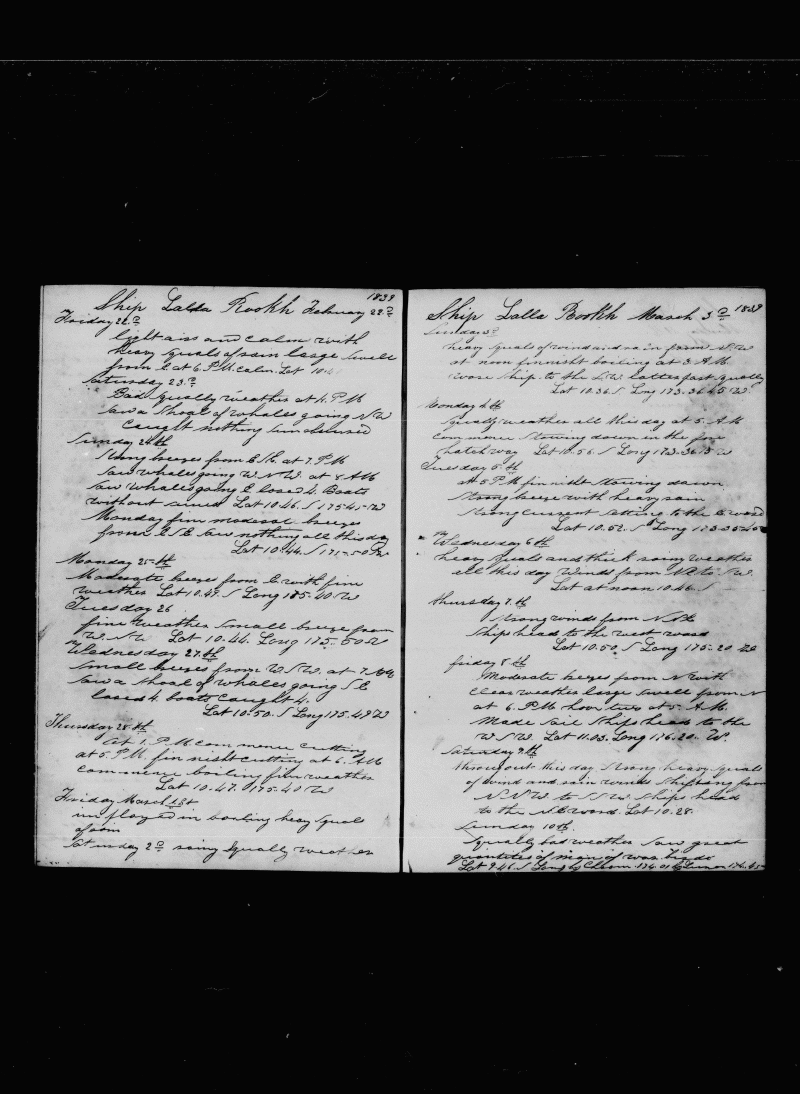 1839
Ship Lalla Rookh February 22d
Friday 22d
light airs and calm with
heavy squals of rain large swell
from E at 6 P.M. calm. Lat 10.4
Saturday 23d
Bad squally weather at 4. P M
saw a shoal of whales going N W
caught nothing
Sunday 24th
Strong breezes from E at 7. P M
saw whales going W N W. at 8 A M
saw whales going E lored 4. Boats
without Lat 10.46. S 175-45-W
Monday fine moderat breeze
from saw nothing all this day
Lat 10.44. S 175-50 W
Monday 25-th
Moderate breeze from E with fine
weather Lat 10.47. S Long 175-40 W
Tuesday 26
fine weather small breeze from
W. N W Lat 10.44. Long 175-50 W
Wednesday 27.th
Small breezes from W S W. at 7 A M
Saw a shoal of whales going S E
lored 4. boats caught 4.
Lat 10.50. S Long 175.49 W
Thursday 28th
at 1. P. M commence cutting
at 5. P. M. finnisht cutting at 6. A M
commence boiling fine weather
Lat 10.47. 175-40 W
Friday March 1st
imployed in boiling heavy squals
of rain
Saturday 2d rainy squally weather
Ship Lalla Rookh March 3d 1839
Sunday 3d
heavy squals of wind and rain from N. W
at noon finnisht boiling at 3. A M
wore ship to the S. W. latter part squally
Lat 10.36 S Long 173.36 45 W.
Monday 4th
squally weather all this day at 5. A M
commence stowing down in the fore
hatchway Lat 10.56 S Long 173-36 15 W
Tuesday 5th
At 5 P M finnisht stowing down
strong breeze with heavy rain
strong current setting to the E ward
Lat 10.52. S Long 173-35-45
Wednesday 6th
heavy squals and thick rainy weather
all this day winds from to S W.
Lat at noon 10.46. S
thursday 7.th
strong winds from N.
ship head to the west ward
Lat 10.50. S Long 175-20
friday 8th
Moderate breezes from N with
clear weather large swell from N
at 6. P M hove two at 5 A. M.
Made Sail ships head to the
W S W. Lat 11.03. Long 176.20. W.
Saturday 9th
throu out this day strong heavy squals
of wind and rain winds shifting from
N. N W. to S S W. ships head
to the N E ward. Lat 10.28.
Sunday 10th.
Squally bad weather saw great
quantites of man of war birds
Lat 9.46. S Long by Chron. 174.01 by Lunar 174.45